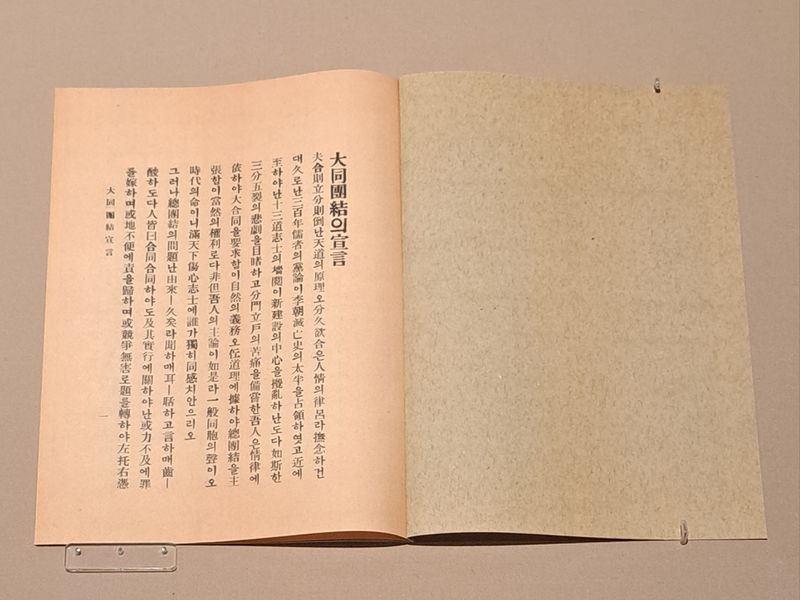 大同團結의宣言
夫合則立分則倒난天道의原理오分久欲合은人情의律呂라撫念하건
대久로난三百年儒者의黨論이李朝滅亡史의太半을占領하엿고近에
至하야난十三道志士의墻鬩이新建設의中心을攪亂하난도다如斯한
三分五裂의悲劇을目睹하고分門立戶의苦痛을備嘗한吾人은情律에
依하야大合同을要求함이自然의義務오又道理에據하야總團結을主
張함이當然의權利로다非但吾人의主論이如是라一般同胞의聲이오
時代의命이니滿天下傷心志士에誰가獨히同感치안으리오
그러나總團結의問題난由來ㅣ久矣라聞하매耳ㅣ聒하고言하매齒ㅣ
酸하도다人皆曰合同合同하야도及其實行에關하야난或力不及에罪
를嫁하며或地不便에責을歸하며或競爭無害로題를轉하야左托右憑
大同團結宣言
一
5